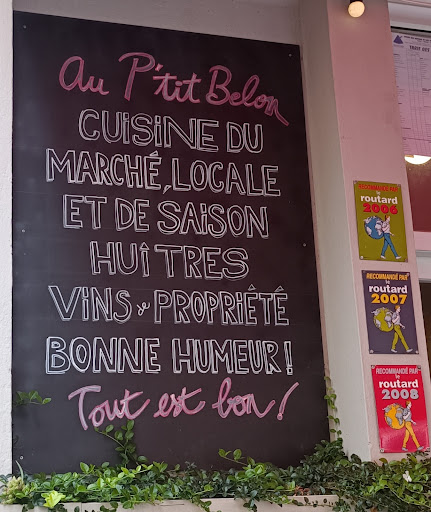 Au P'tit Belon
CUISINE DU
MARCHÉ, LOCALE
ET DE SAISON
HUÎTRES
VINS de PROPRIÉTÉ
BONNE HUMEUR !
Tout est bon !
RECOMMANDÉ PAR
le
routard
2006
RECOMMANDÉ PAR
le
routard
2007
RECOMMANDÉ PAR
le
routard
2008